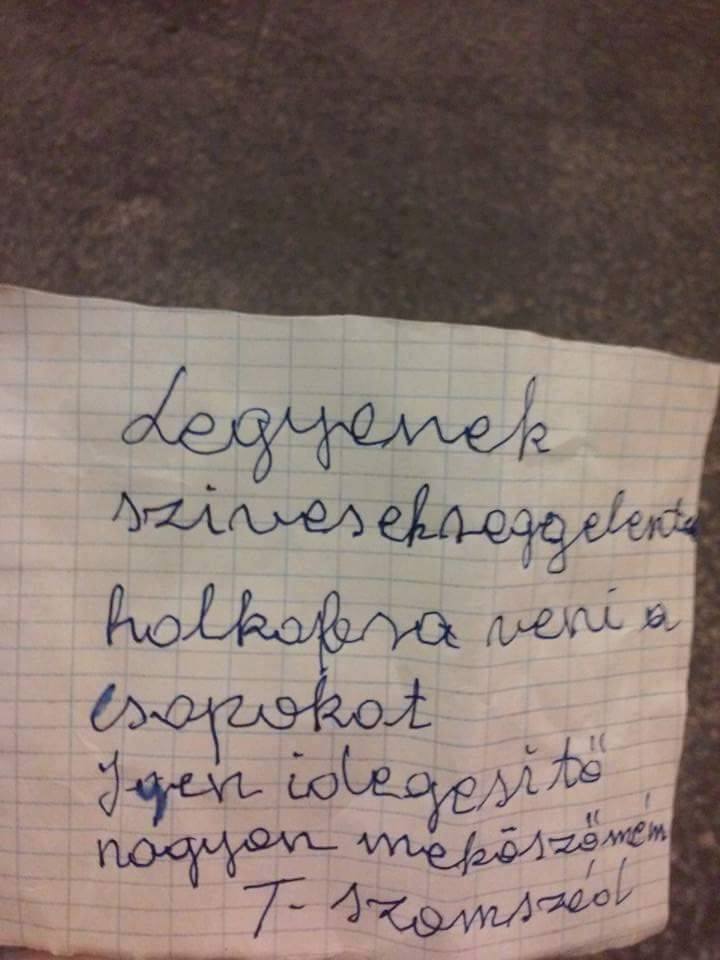 Legyenek
szivesekreggelente
holkabra veni a
csapokat
Igen idegesitő
nagyon mekőszőmém
T. szomszéd